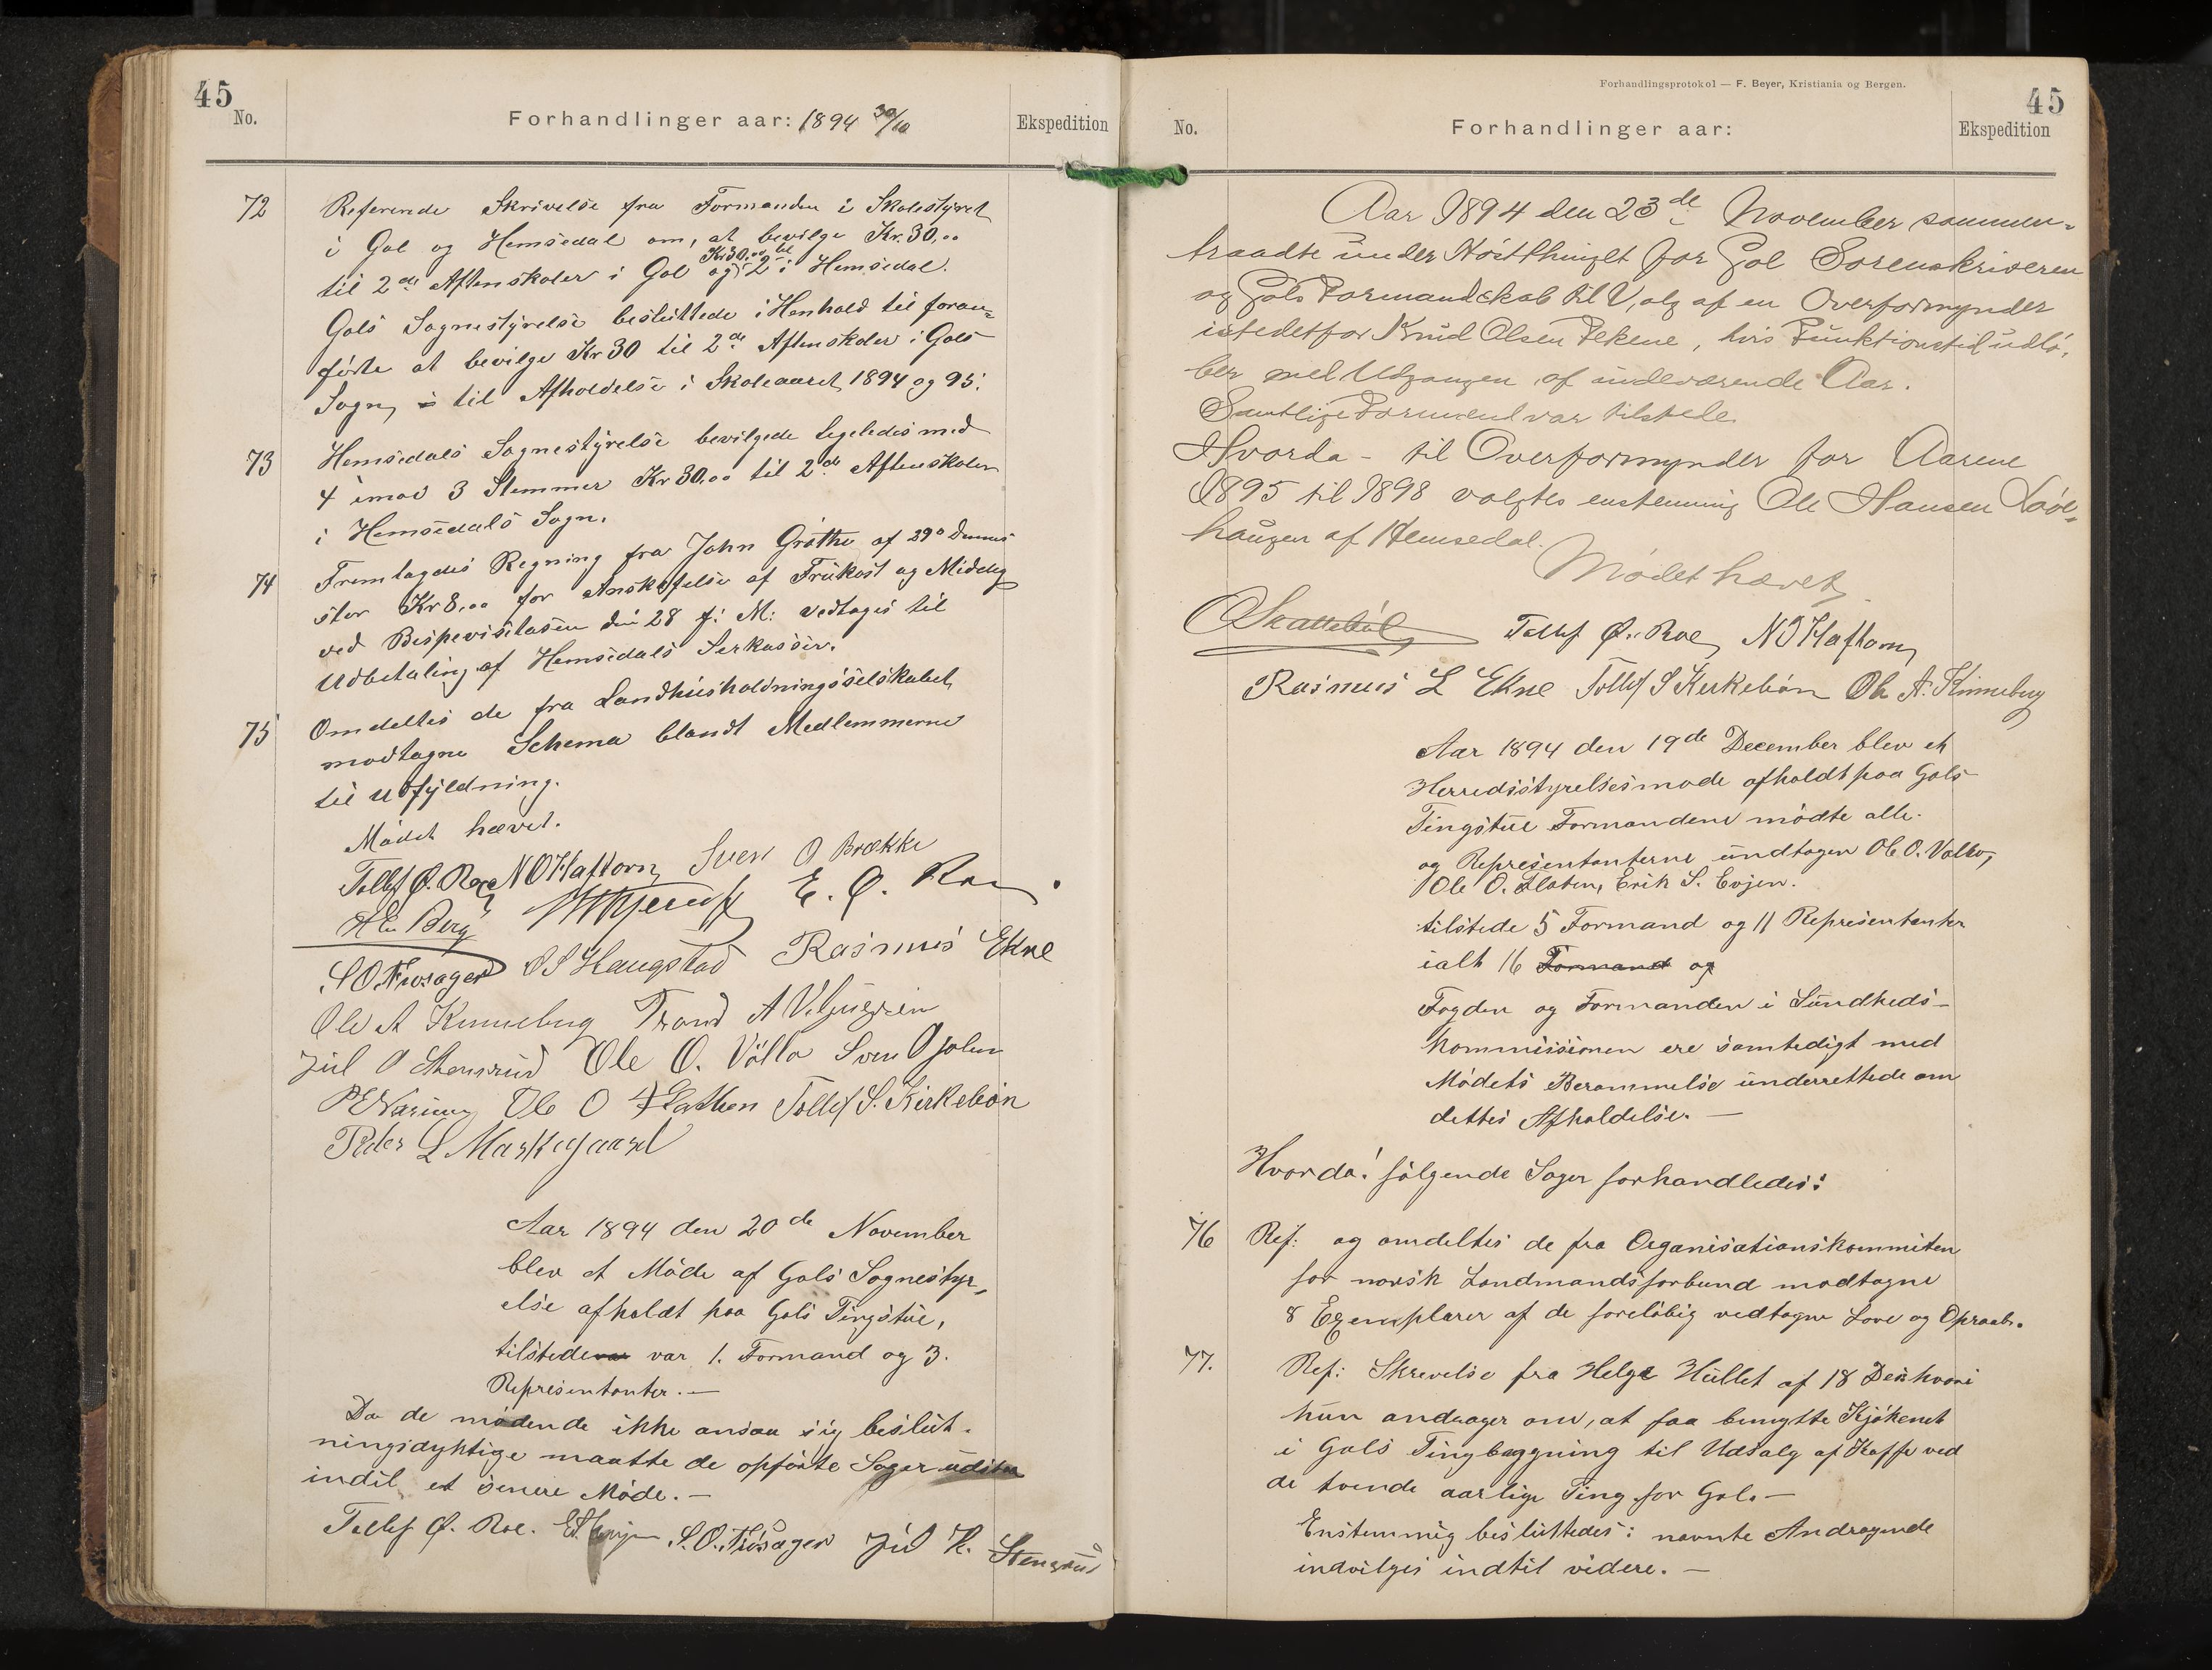 45
No.
Forhandlinger aar: 1894 30/10
Ekspedition
72 Referende Skrivelse fra Formanden i Skolestyret
i Gol og Hemsedal om, at bevilge Kr. 30,00
til 2de Aftenskoler i Gol og Kr 30.00 til 2 i Hemsedal.
Gols Sognestyrelse besluttede i Henhold til foran-
førte at bevilge Kr 30 til 2de Aftenskoler i Gols
Sogn, til Afholdelse i Skoleaaret 1894 og 95.
73 Hemsedals Sognestyrelse bevilgede ligeledes med
4 imod 3 Stemmer Kr 30,00 til 2de Aftenskoler
i Hemsedals Sogn.
74 Fremlagdes Regning fra John Grøthe af 29de
stor Kr 8,00 for Anskaffelse af Frukost og Middag
ved Bispevisitasen den 28 f: M: vedtages til
Udbetaling af Hemsedals Serkasse.
75 Omdeltes de fra Landhusholdningsselskabet
modtagne Schema blandt Medlemmerne
til Udfyldning.
Mødet hævet.
Tollef Ø. Roe N O Haftorn Sven O Brække
H E Berg E. Ø. Roe
S O Tuv ager O S Haugstad Rasmus Ekne
Ole A Kinneberg Trond A Viljugrein
Jul Stensrud Ole O. Vøllo Sven O Golen
Ole O Flathen Tollef S. Kirkebøn
Peder L Markegaard
Aar 1894 den 20de November
blev et Møde af Gols Sognestyr-
else afholdt paa Gols Tingstue,
tilstede var 1. Formand og 3.
Representanter. —
Da de mødende ikke ansaa sig beslut-
ningsdyktige maatte de opførte Sager udstaa
indtil et senere Møde. —
Tollef Ø. Roe. E S Evjen S. O. Jul K. Stensrud
Forhandlingsprotokol — F. Beyer, Kristiania og Bergen.
45
No.
Forhandlinger aar:
Ekspedition
Aar 1894 den 23de November sammen-
traadte under Høstthinget for Gol Sorenskriveren
og Gols Formandskab til Valg af en Overformynder
istedetfor Knud Olsen Ekene, hvis Funktionstid udlø-
ber med Udgangen af indeværende Aar.
Samtlige Formænd var tilstede
Hvorda - til Overformynder for Aarene
1895 til 1898 valgtes enstemmig Ole Hansen Løve-
haugen af Hemsedal.
Mødet hævet
Skattebøl Tollef Ø. Roe, N O Haftorn
Rasmus L Ekne Tollef S Kirkebøn Ole A. Kinneberg
Aar 1894 den 19de December blev et
Herredsstyrelsesmøde afholdt paa Gols
Tingstue Formandene mødte alle
og Representanterne undtagen Ole O. Vøllo,
Ole O. Flaten, Erik S. Evjen.
tilstede 5 Formænd og 11 Representanter
ialt 16 Formænd og
Fogden og Formanden i Sundheds-
kommissionen ere samtedigt med
Mødets Berammelse underrettede om
dettes Afholdelse. —
Hvorda! følgende Sager forhandledes:
76 Ref: og omdeltes de fra Organisationskommiten
for norsk Landmandsforbund modtagne
8 Exemplarer af de foreløbig vedtagne Love og Opraab.
77. Ref: Skrevelse fra Helge Hullet af 18 Des hvori
hun andrager om, at faa benytte Kjøkenet
i Gols Tingbygning til Udsalg af Kaffe ved
de tvende aarlige Ting for Gol. —
Enstemmig besluttedes: nævnte Andragende
indvilges indtil videre. —